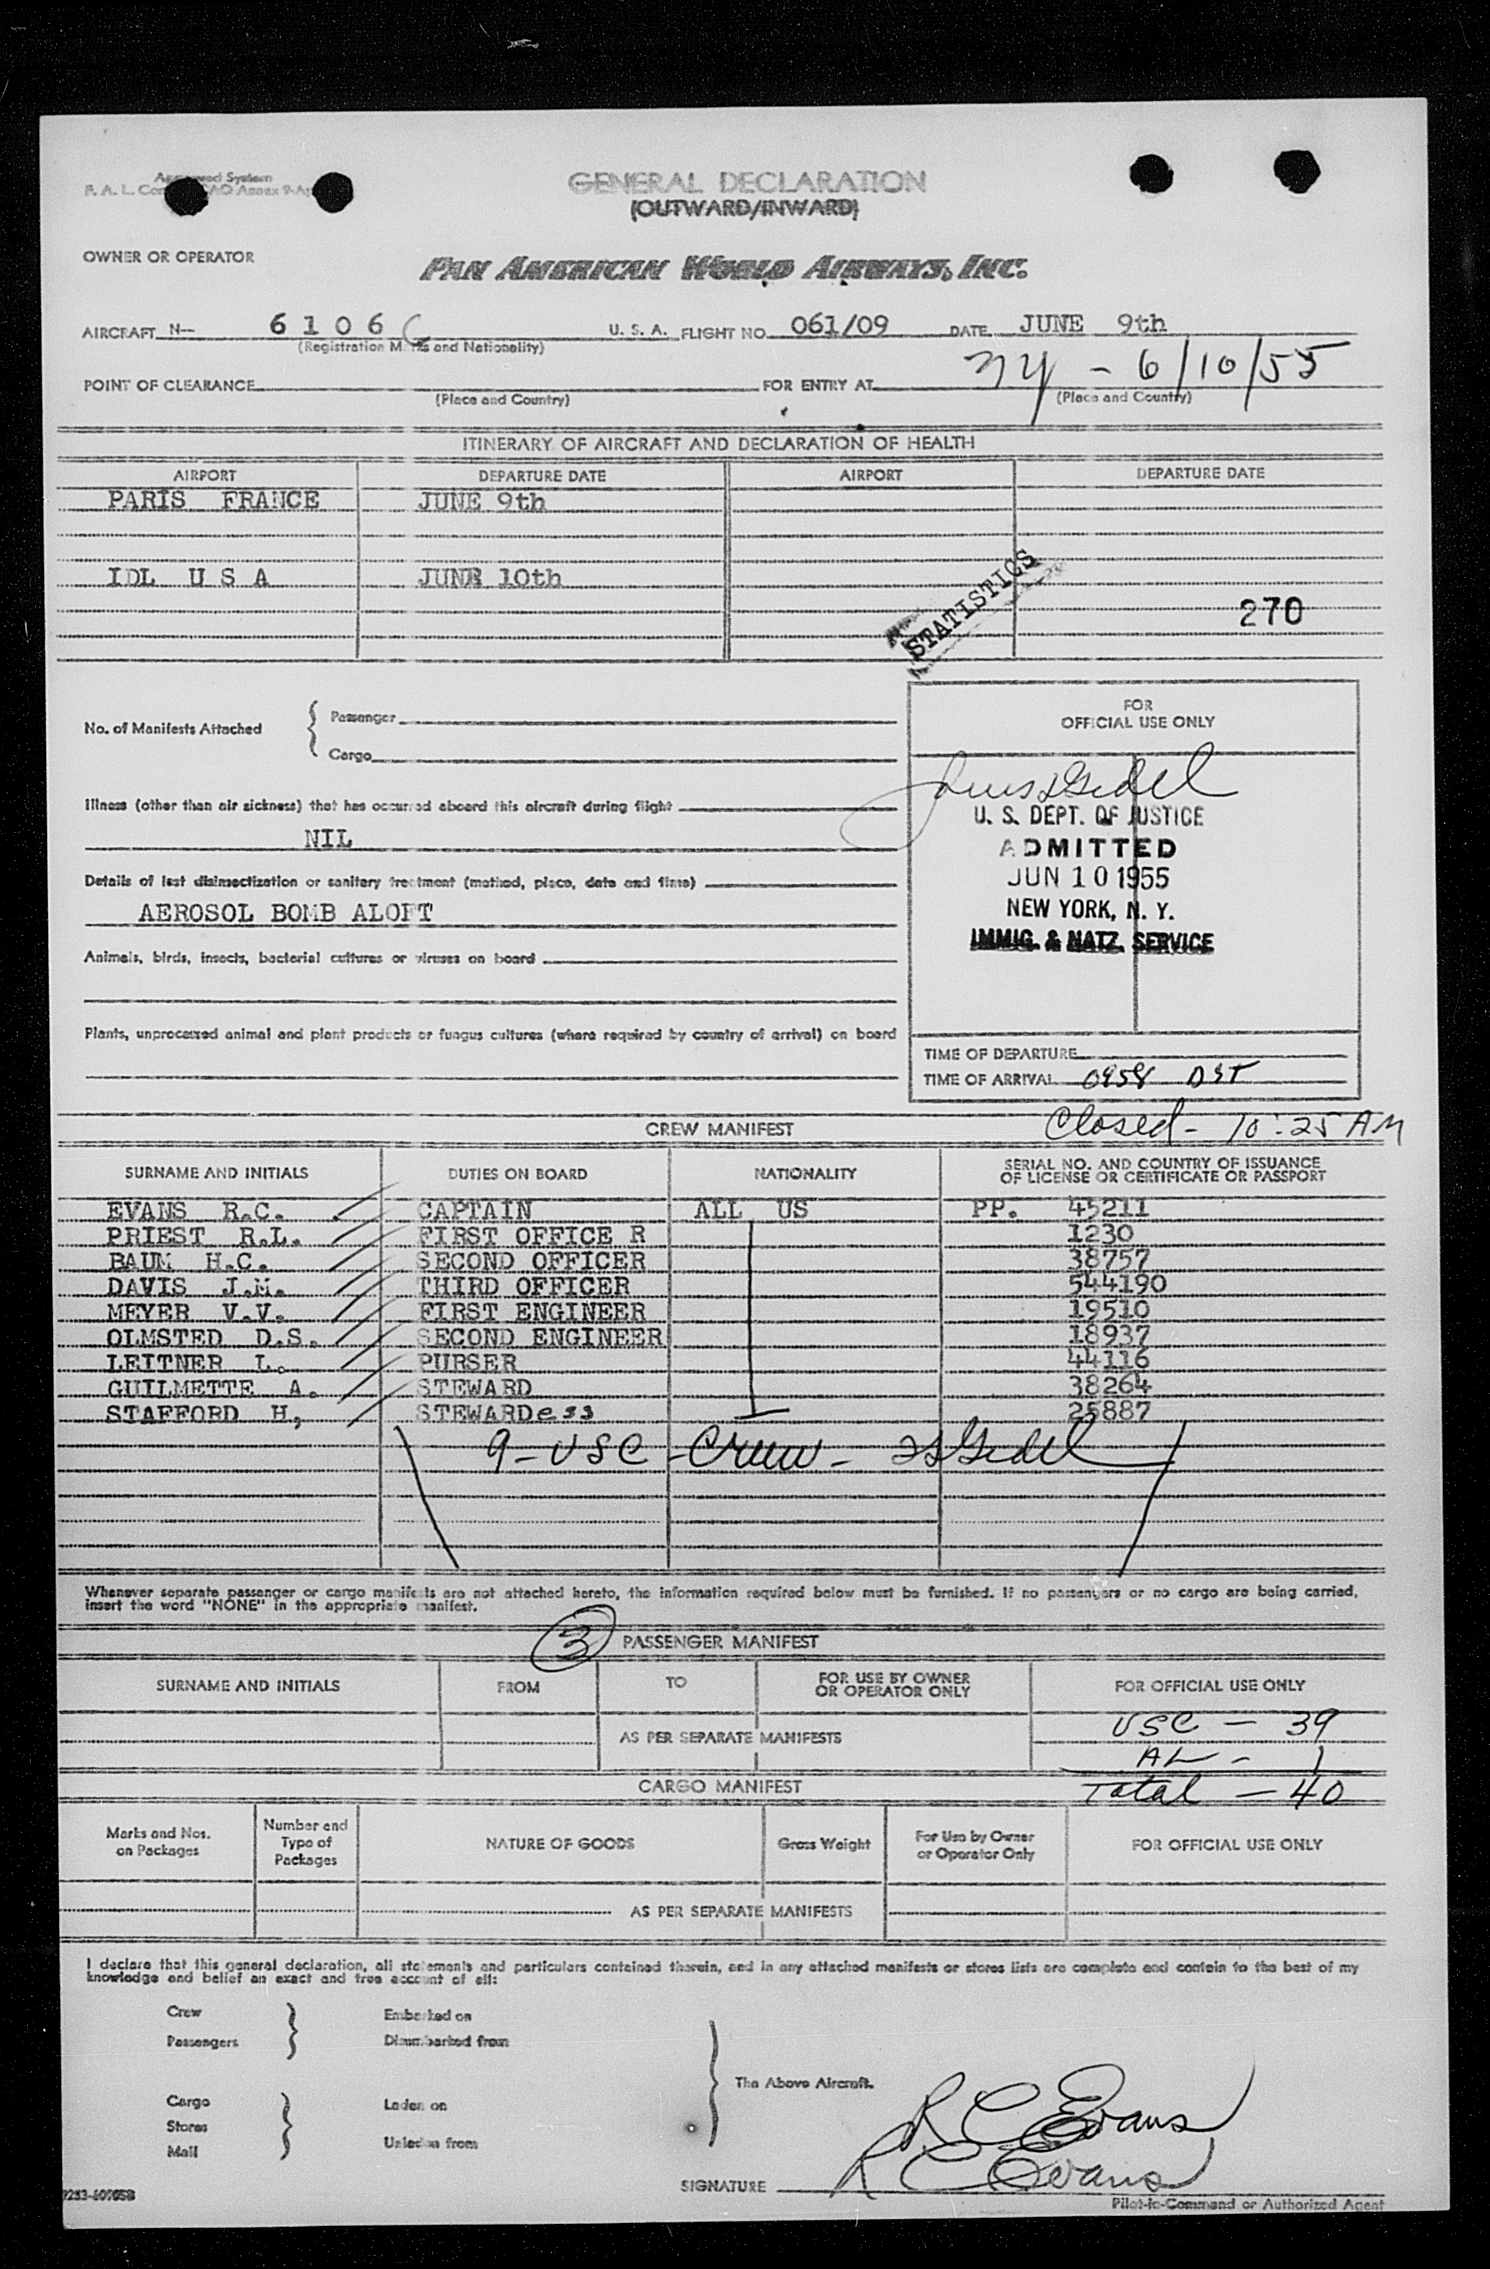 Approved System
GENERAL DECLARATION
(OUTWARD/INWARD)
OWNER OR OPERATOR
PAN AMERICAN WORLD AIRWAYS, INC.
AIRCRAFT N— 6 1 0 6 C U. S. A. FLIGHT NO. 061/09 DATE JUNE 9th
(Registration Marks and Nationality)
POINT OF CLEARANCE FOR ENTRY AT NY - 6/10/55
(Place and Country) (Place and Country)
ITINERARY OF AIRCRAFT AND DECLARATION OF HEALTH
AIRPORT DEPARTURE DATE AIRPORT DEPARTURE DATE
PARIS FRANCE JUNE 9th
IDL U S A JUNE 10th
STATISTICS
270
No. of Manifests Attached { Passenger
Cargo
FOR
OFFICIAL USE ONLY
Illness (other than air sickness) that has occurred aboard this aircraft during flight
NIL
U. S. DEPT. OF JUSTICE
ADMITTED
JUN 10 1955
NEW YORK, N. Y.
IMMIG. & NATZ. SERVICE
Details of last disinsectization or sanitary treatment (method, place, date and time)
AEROSOL BOMB ALOFT
Animals, birds, insects, bacterial cultures or viruses on board
Plants, unprocessed animal and plant products or fungus cultures (where required by country of arrival) on board
TIME OF DEPARTURE
TIME OF ARRIVAL 0958 DST
Closed - 10:25 AM
CREW MANIFEST
SURNAME AND INITIALS DUTIES ON BOARD NATIONALITY SERIAL NO. AND COUNTRY OF ISSUANCE
OF LICENSE OR CERTIFICATE OR PASSPORT
EVANS R.C. CAPTAIN ALL US PP. 45211
PRIEST R.L. FIRST OFFICE R 1230
BAUM H.C. SECOND OFFICER 38757
DAVIS J.M. THIRD OFFICER 544190
MEYER V.V. FIRST ENGINEER 19510
OLMSTED D.S. SECOND ENGINEER 18937
LEITNER L. PURSER 44116
GUILMETTE A. STEWARD 38264
STAFFORD H, STEWARDess 25887
9 - USC - Crew -
Whenever separate passenger or cargo manifests are not attached hereto, the information required below must be furnished. If no passengers or no cargo are being carried,
insert the word "NONE" in the appropriate manifest.
3 PASSENGER MANIFEST
SURNAME AND INITIALS FROM TO FOR USE BY OWNER
OR OPERATOR ONLY FOR OFFICIAL USE ONLY
AS PER SEPARATE MANIFESTS
USC - 39
AL - 1
Total - 40
CARGO MANIFEST
Marks and Nos.
on Packages
Number and
Type of
Packages
NATURE OF GOODS
Gross Weight
For Use by Owner
or Operator Only
FOR OFFICIAL USE ONLY
AS PER SEPARATE MANIFESTS
I declare that this general declaration, all statements and particulars contained therein, and in any attached manifests or stores lists are complete and contain to the best of my
knowledge and belief an exact and true account of all:
Crew Embarked on
Passengers Disembarked from
The Above Aircraft.
Cargo Laden on
Stores
Mail Unladen from
R C Evans
SIGNATURE R C Evans
Pilot-in-Command or Authorized Agent